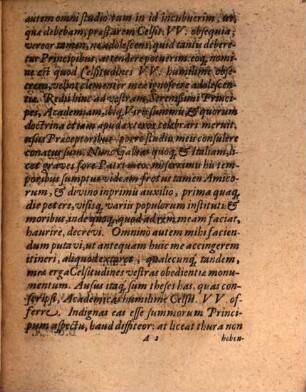 autem omni studio tum in id incubuerim, ut,
quæ debebam, præstarem Celsit. VV. obsequia;
vereor tamen, ne adolescens, quid tanti debere-
tur Principibus, attendere potuerim. eoq; nomi-
ne eri quod Celsitudines VV. humilimè obse-
crem, velint clementer meæ ignoscere adolescen-
tiæ. Redii hinc ad vestram, Serenissimi Princi-
pes, Academiam, ibiq; Virorum & quorum
doctrina etiam apud exteros celebrari meruit,
usus Præceptoribus opera studiis meis consulere
conatus sum. Nunc Gallias quoq; & Italiam, li-
cet graves fore Patri meo miserrimis his tem-
poribus sumptus videam fretus tamen Amico-
rum, & divino inprimis auxilio, prima quaq;
die petere, visisq; variis populorum institutis &
moribus, inde quoq; quod ad rem meam faciat,
haurire, decrevi. Omnino autem mihi facien-
dum putavi, ut antequam huic me accingerem
itineri, aliquod extaret, qualecunq; tandem,
meæ erga Celsitudines vestras obedientiæ monu-
mentum. Ausus itaq; sum theses has, quas con-
scripsi, Academicas humilimè Celsit. VV. of-
ferre. Indignas eas esse summorum Princi-
pum aspectu, haud diffiteor: at liceat thura non
A 2
haben-